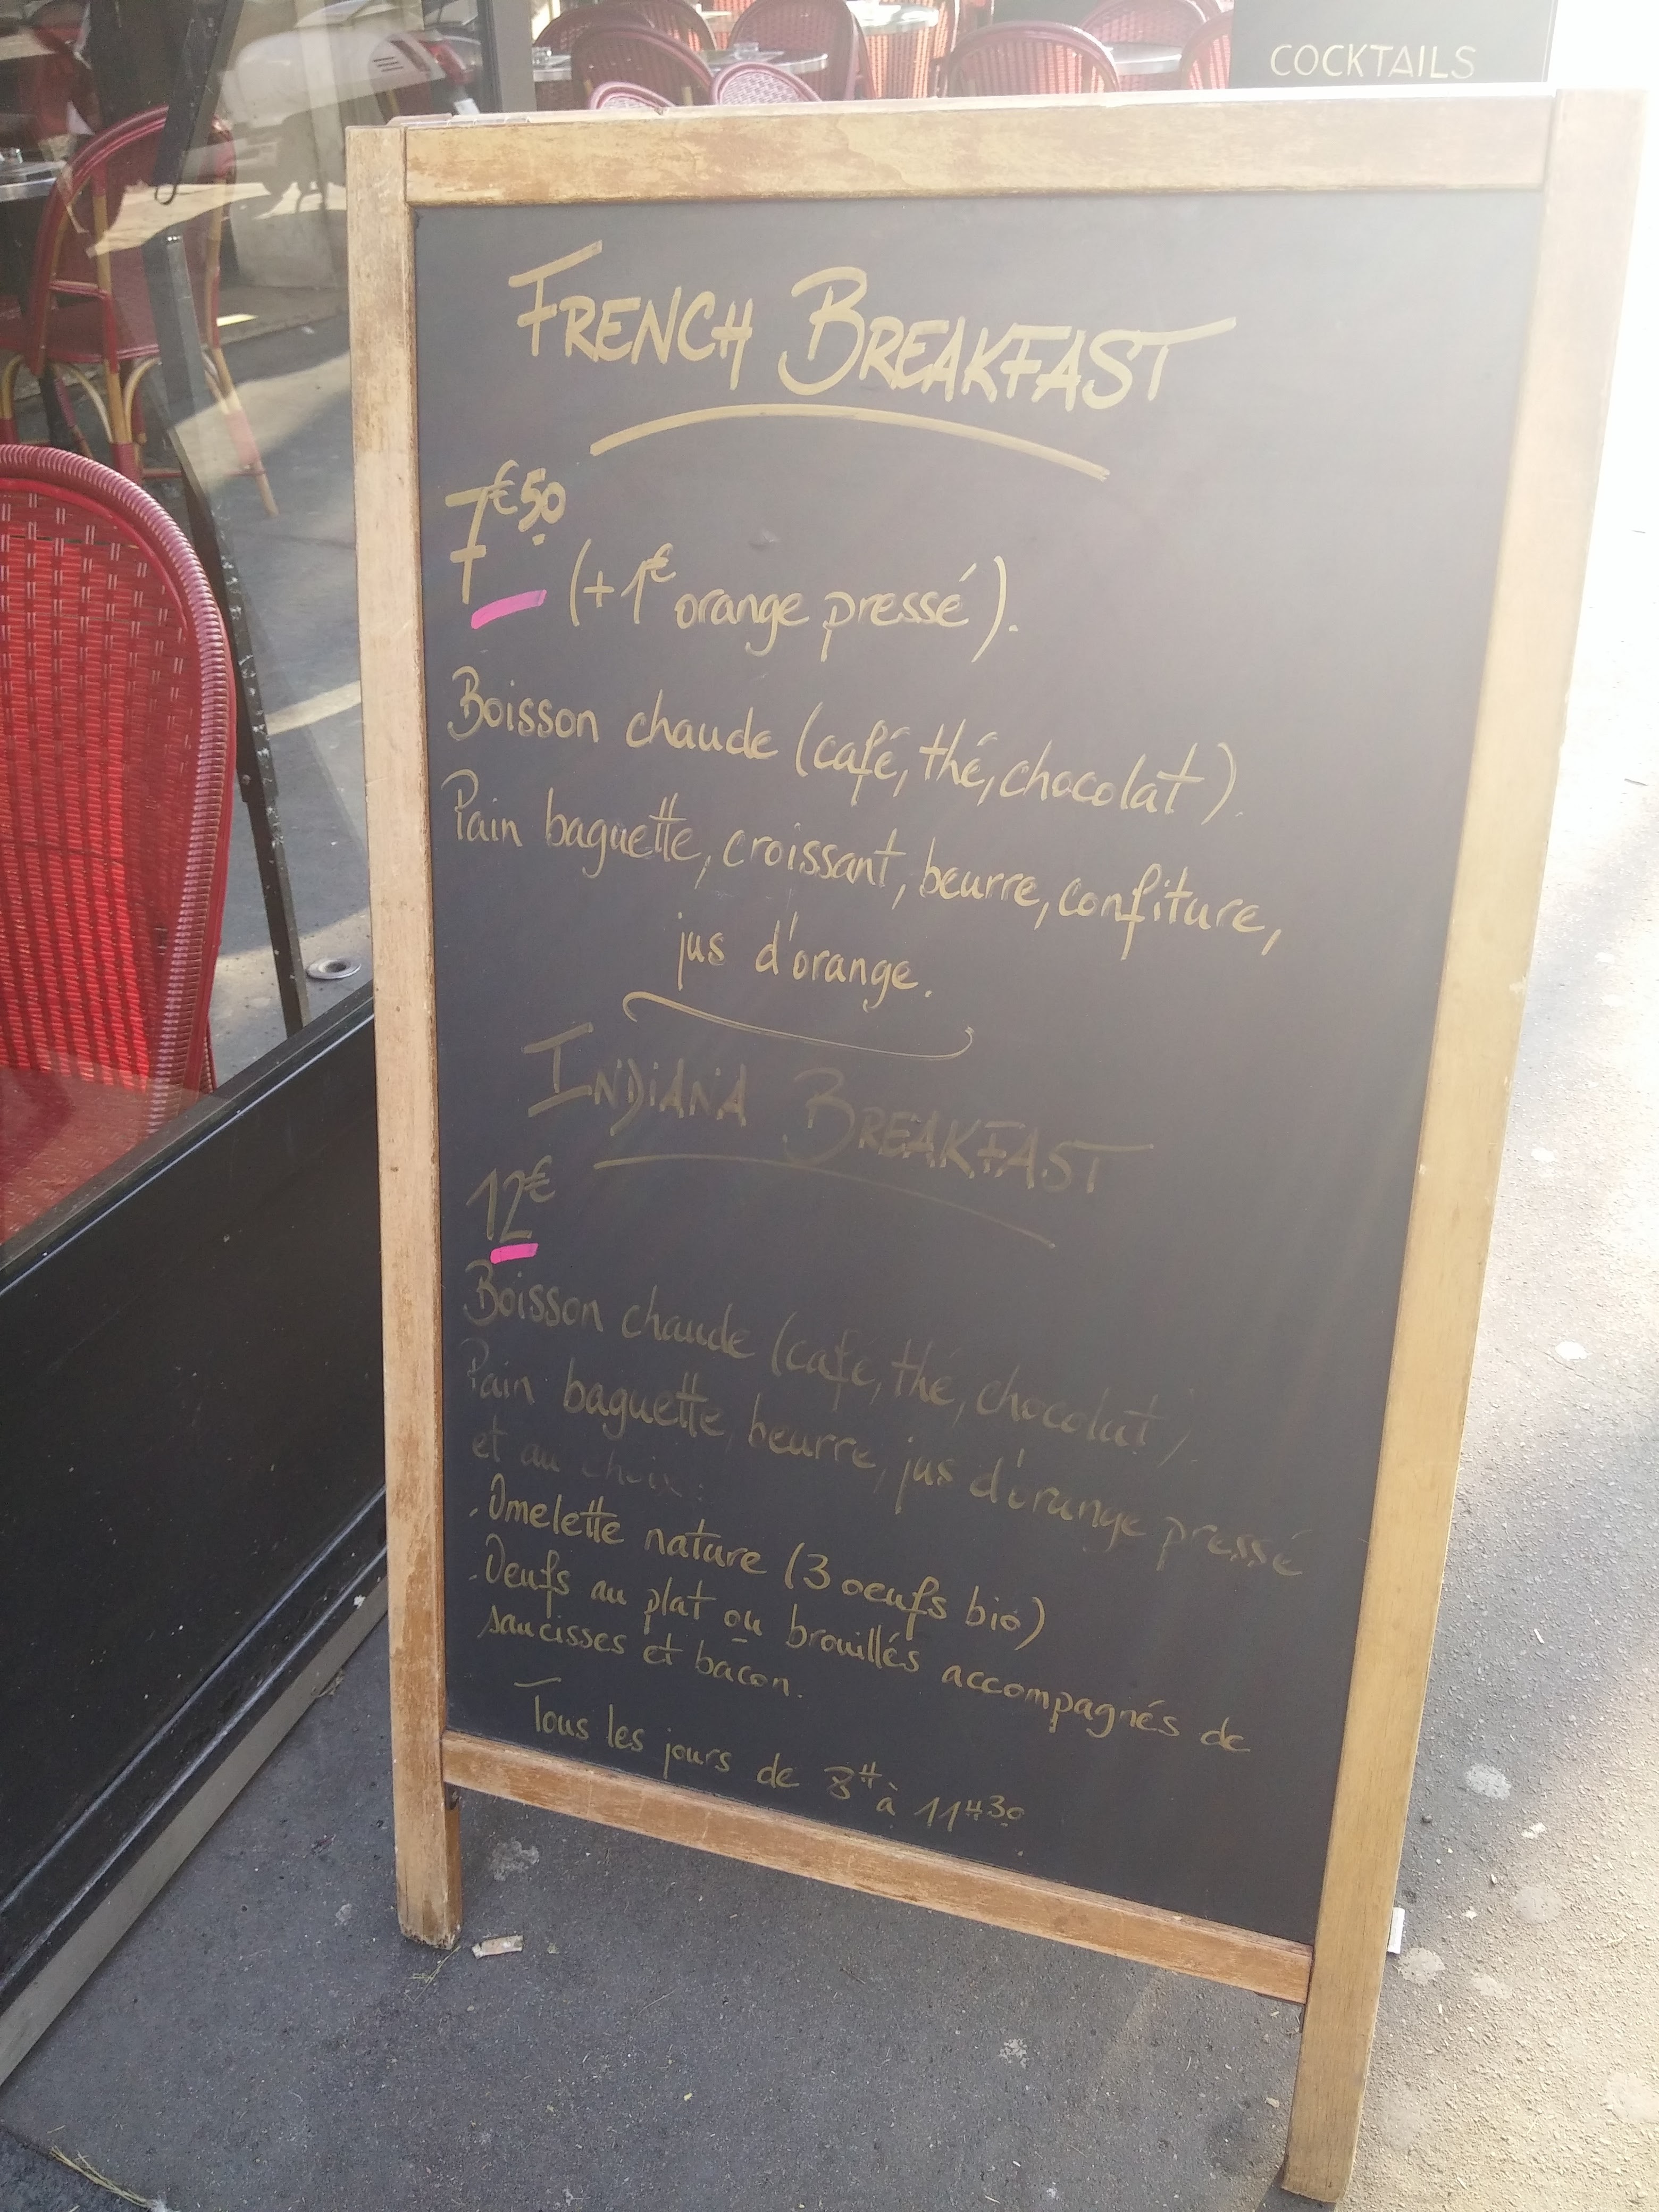 COCKTAILS
FRENCH BREAKFAST
7€50
(+1€ orange pressé).
Boisson chaude (café, thé, chocolat).
Pain baguette, croissant, beurre, confiture,
jus d'orange.
INDIANA BREAKFAST
12€
Boisson chaude (café, thé, chocolat)
Pain baguette, beurre, jus d'orange pressé
et au choix:
. Omelette nature (3 oeufs bio)
. Oeufs au plat ou brouillés accompagnés de
saucisses et bacon.
Tous les jours de 8H à 11H30